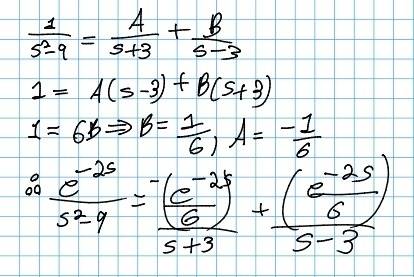 1/(s²-9) = A/(s+3) + B/(s-3)
1 = A(s-3) + B(s+3)
1 = 6B ⇒ B = 1/6, A = -1/6
∴ e^(-2s)/(s²-9) = -(e^(-2s)/6)/(s+3) + (e^(-2s)/6)/(s-3)